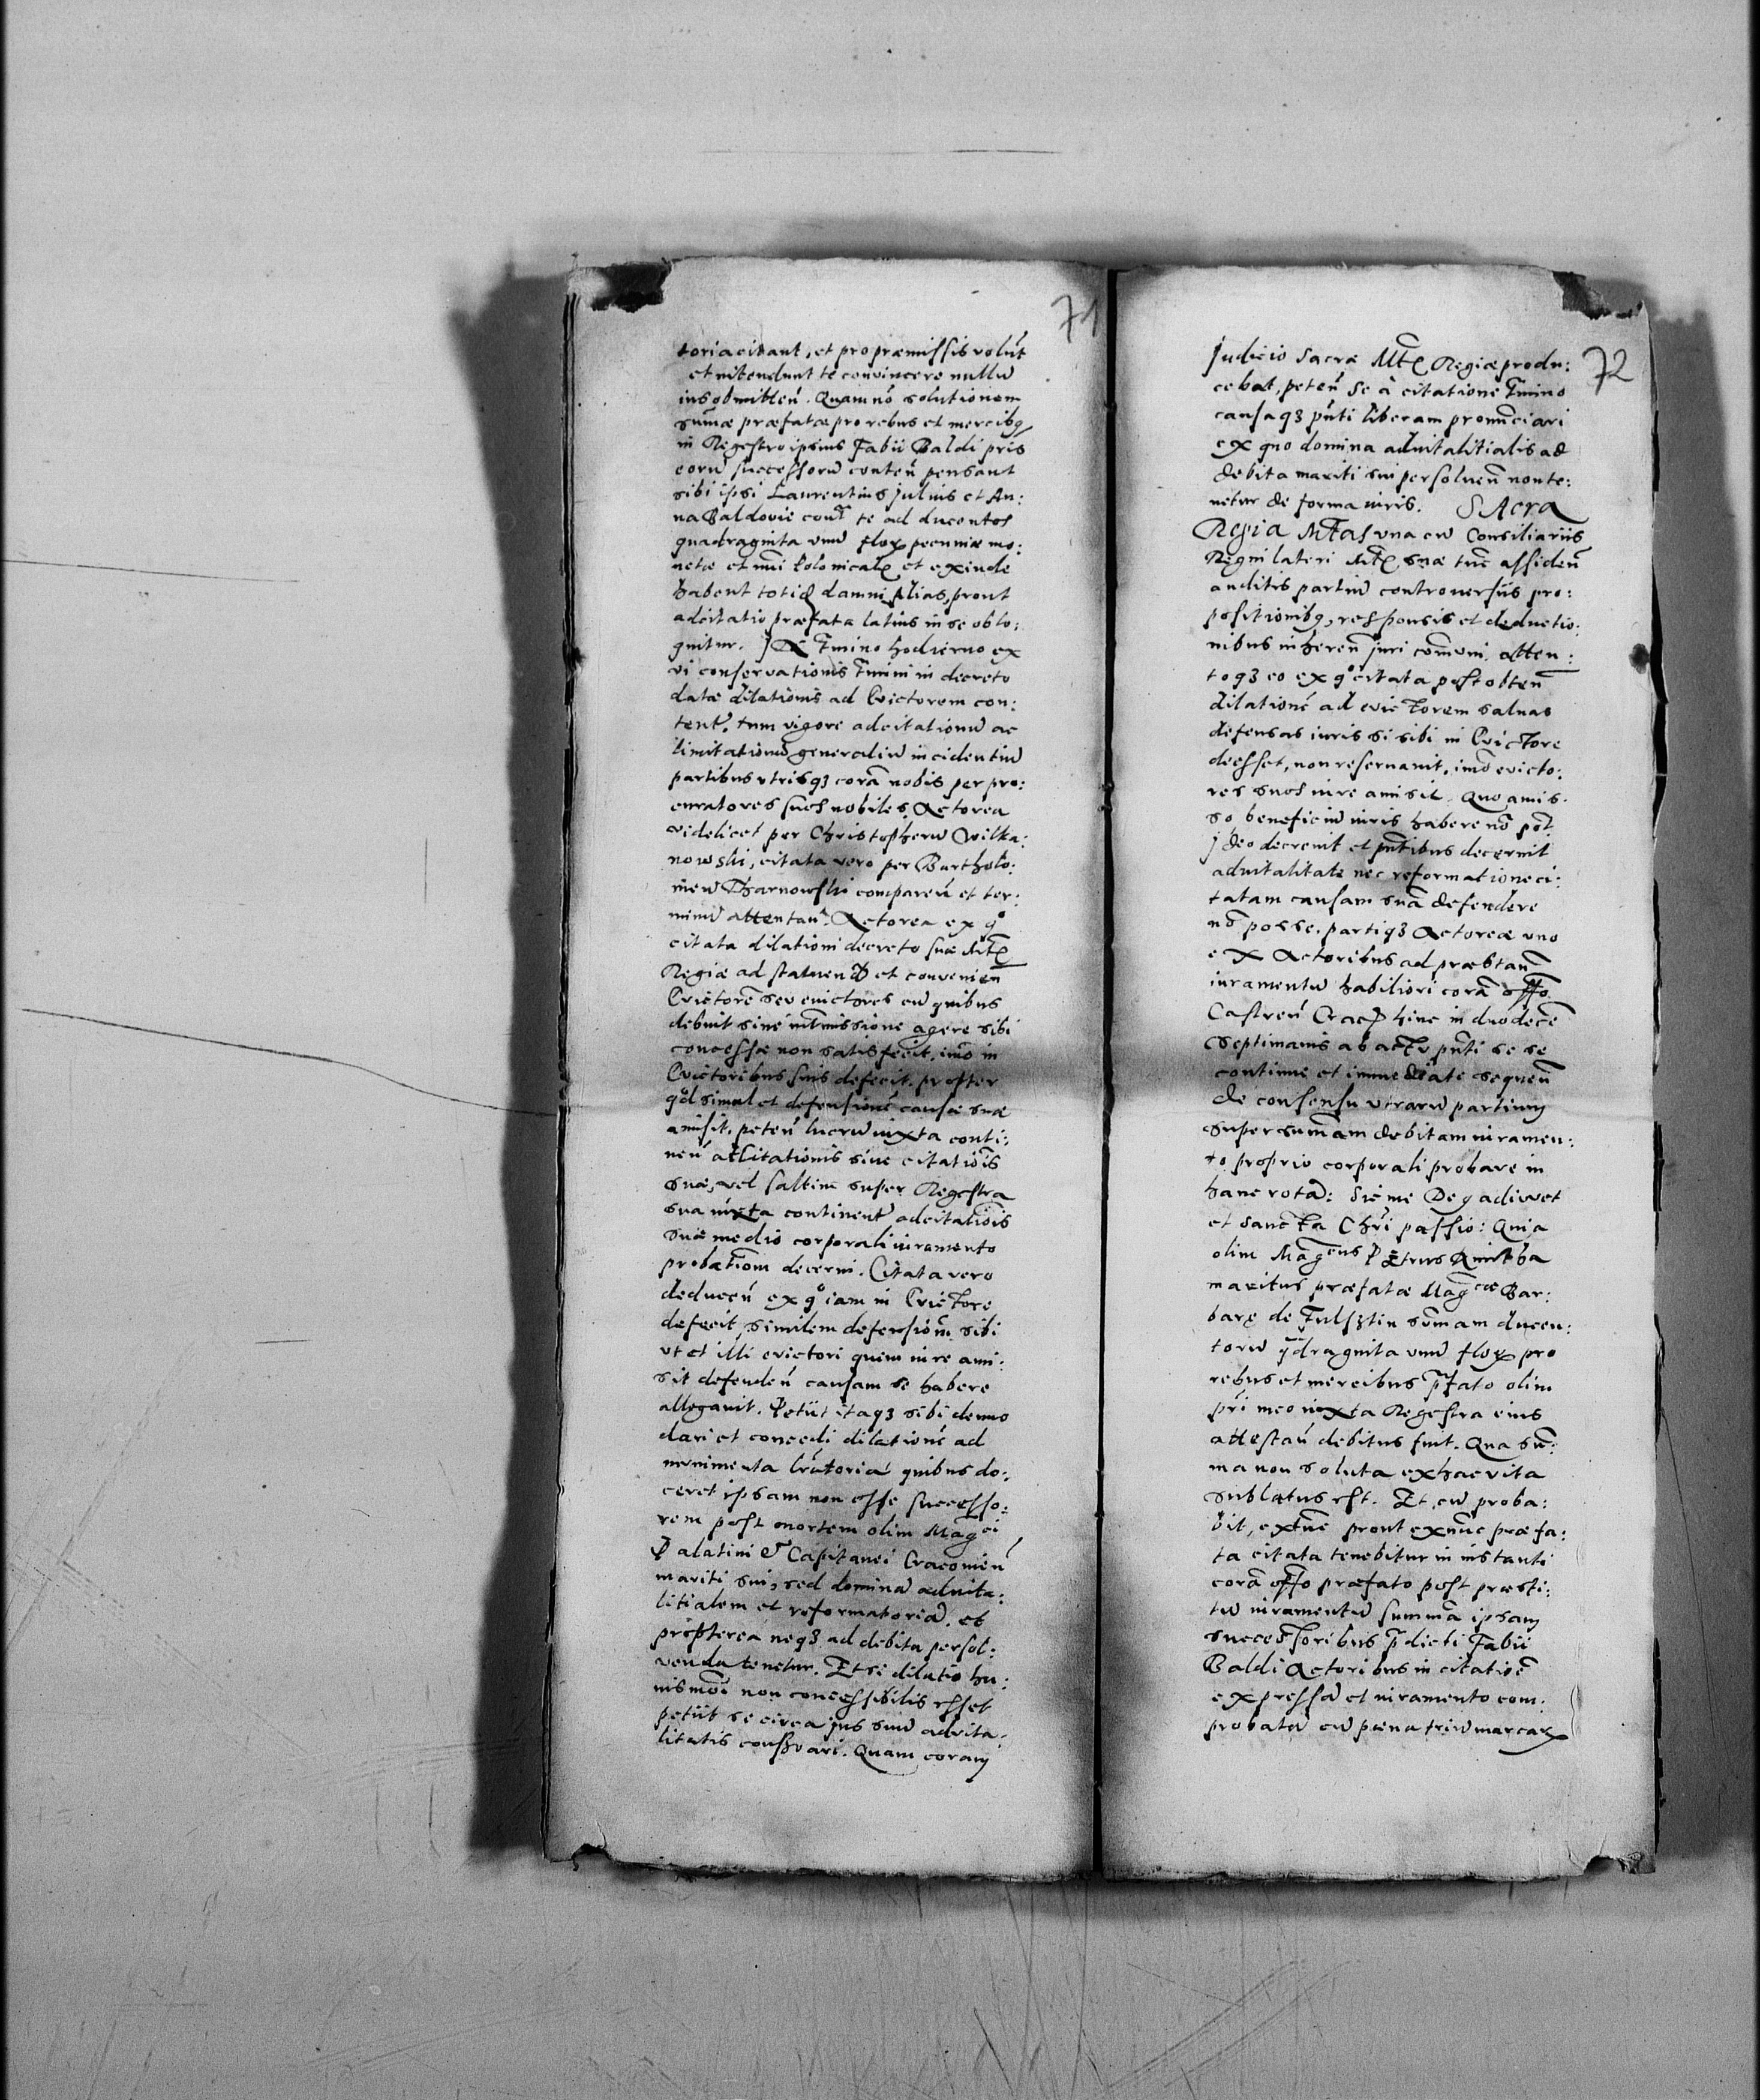 71
toria citant, et pro præmissis volūt
et nitendunt te convincere nullū
ius obmitteñ. Quam nō solutionem
sum̃æ præfatæ pro rebus et mercibq
in Regestro ipsius Fabii Baldi pris
eorū successorū conteñ pensant
sibi ipsi Laurentius Julius et An:
na Baldovie cont̃ te ad ducentos
quadraginta vnū flor pecuniæ mo:
netæ et nu͠i Polonicał et exinde
habent totid damni. Alias, prout
adcitatio præfata latius in se oblo:
quitur. In T͠mino hodierno ex
vi conservationis T͠mini in decreto
datæ dilationis ad Evictorem con:
tent̃, tum vigore adcitationū ac
limitationū generaliū incidentiū
partibus vtrisqꝫ corā nobis per pro:
curatores suos nobiles, Actorea
videlicet per Christopherū Wilka:
nowski, citata vero per Bartholo:
meū Tharnowski compareñ et ter:
minū attentañ. Actorea ex qͦ
citata dilationi decreto suæ Mt͠
Regiæ ad statuend et convenieñ
Evictorē seu evictores cū quibus
debuit sine int͠missione agere sibi
concessæ non satisfecit, imō in
Evictoribus suis defecit. propter
qd simul et defensionē causæ suæ
amisit. peteñ lucrū iuxta conti:
neñ adcitationis siue citatiōis
suæ, vel saltim super Regestra
sua iuxta continent̃ adcitatiōis
suæ medio corporali iuramento
probatiōm decerni. Citata vero
deduceñ ex qͦ iam in Evictore
defecit, similem defensiōm sibi
vt et illi evictori quem iure ami:
sit defendeñ causam se habere
allegavit. Petiit itaqꝫ sibi denuo
dari et concedi dilationē ad
munimenta l͠ratoria quibus do:
ceret ipsam non esse successo:
rem post mortem olim Magci
Palatini et Capitanei Cracovieñ
mariti sui, sed dominā advita:
litialem et reformatoriā. et
propterea neqꝫ ad debita persol:
venda tenetur. Et si dilatio hu:
iusmōi non concessibilis esset
petiit se circa jus suū advita:
litatis conservari. Quam coram
72
Judicio Sacræ Mt͠ Regiæ produ:
cebat, peteñ se à citatione T͠mino
causaqꝫ pñti liberam pronūciari
ex quo domina advitalitialis ad
debita mariti sui persolueñ non te:
netur de forma iuris. SAcra
Regia Mt͠as vna cū Consiliariis
Regni lateri Mt͠ suæ tūc assideñ
auditis partiū controversiis pro:
positionibq, responsis et deductio:
nibus inhereñ juri com̃uni, atten:
toqꝫ eo ex qͦ citata post obteñ
dilationē ad evictorem salvas
defensas iuris si sibi in Evictore
deesset, non reservavit, imō evicto:
res suos iure amisit. Quo amis:
so beneficiū iuris habere nō pot̃
jdeo decrevit et pñtibus decernit
advitalitate nec reformatione ci:
tatam causam suā defendere
nō posse. partiqꝫ Actoreæ vno
ex Actoribus ad præstañ
iuramentū habiliori corā offo
Castreñ Crac hinc in duodecē
septimanis ab actu pñti se se
continue et immediate sequeñ
de consensu vtrarū partium
super summam debitam iuramen:
to proprio corporali probare in
hanc rotā: Sic me Deq adiuvet
et sancta Chri͠ passio: Quia
olim Magcus Petrus Kmitha
maritus præfatæ Magcæ Bar:
baræ de Fulsztin sum̃am ducen:
torū qdraginta vnū flor pro
rebus et mercibus p͠fato olim
pri͠ meo iuxta Regestra eius
attestañ debitus fuit. Qua sum̃:
ma non soluta ex hac vita
sublatus est. Et cū proba:
bit, extūc prout exnūc præfa:
ta citata tenebitur in instanti
corā offo præfato post præsti:
tū iuramentū summā ipsam
successoribus p͠dicti Fabii
Baldi Actoribus in citatiōē
expressā et iuramento com:
probatā cū pæna triū marcar